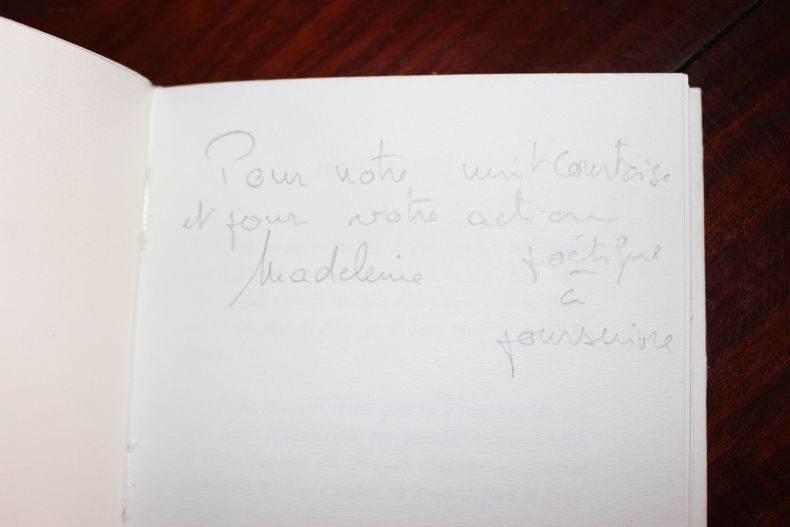 Pour notre nuit courtoise
et pour votre action
Madeleine poétique
à
poursuivre